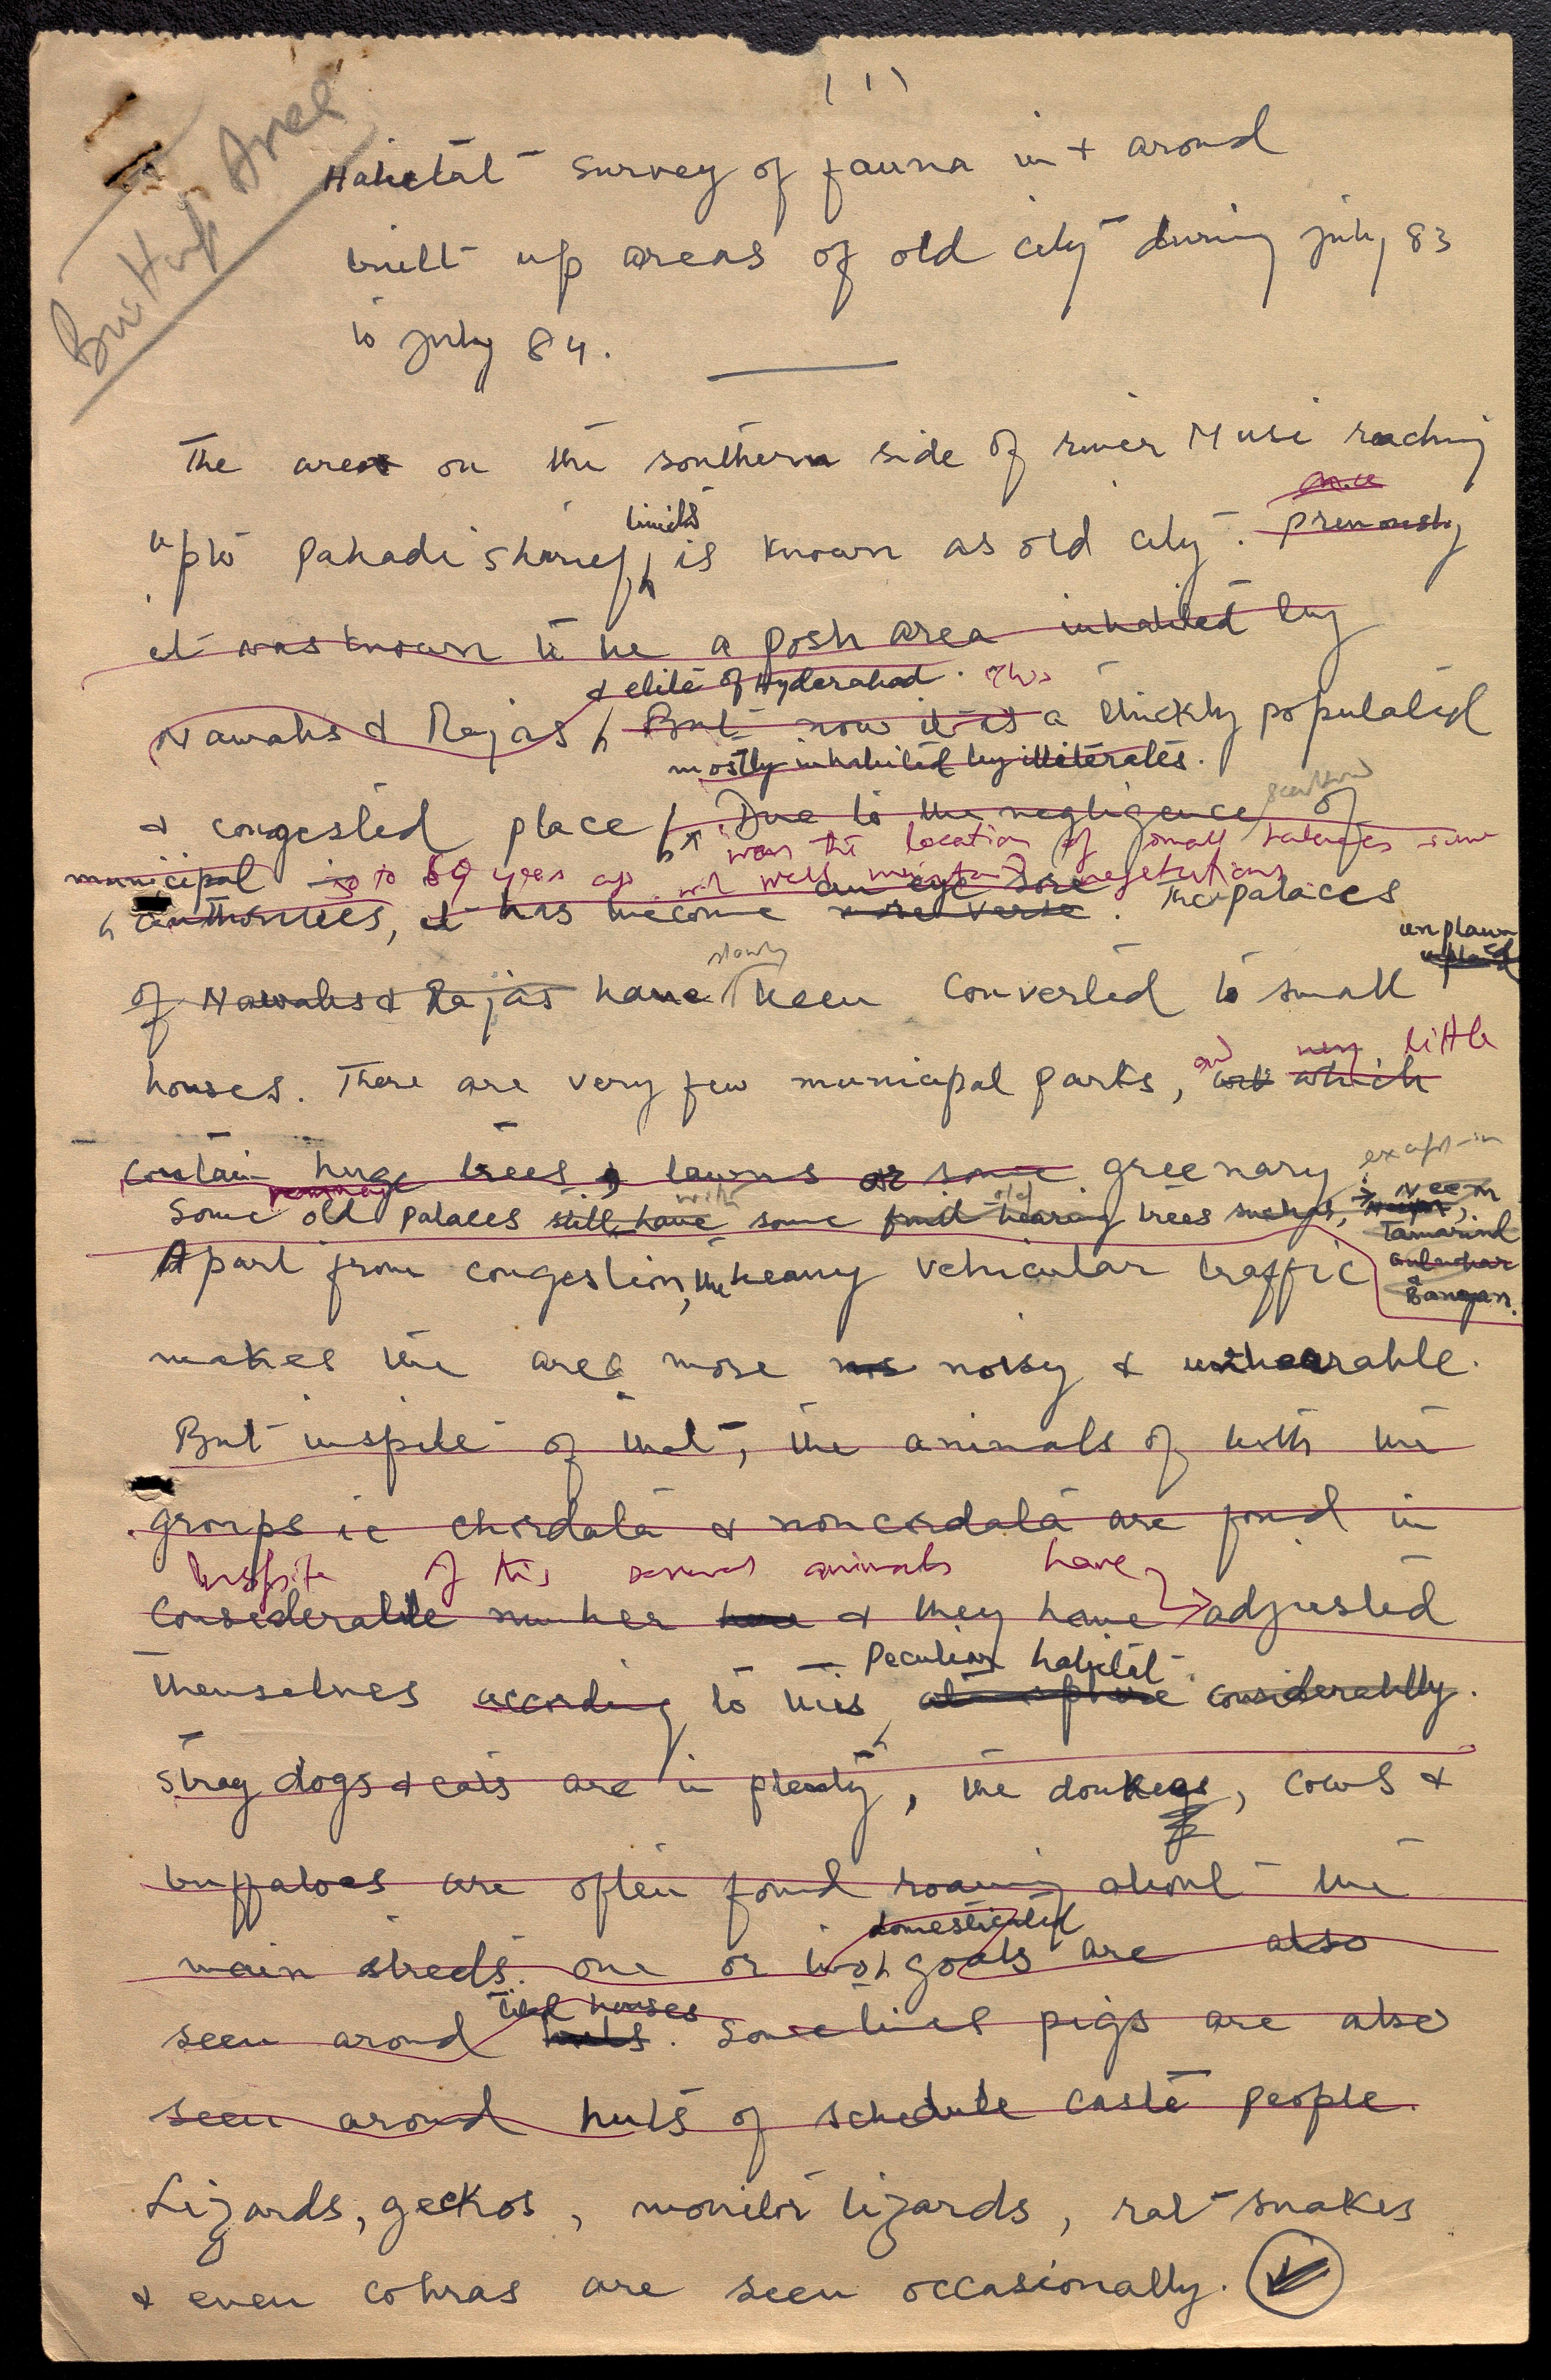 (1)
Built Up Area
Habitat Survey of fauna in + arond
built up areas of old city during july 83
to july 84.
The area on the southern side of river Musi reaching
once
limits
upto Pahadi Sharief, is known as old city. previously
it was known to be a posh area inhabited by
& elite of Hyderabad. This
Nawabs & Rajas, But now it is a thickly populated
mostly inhabited by illiterates.
scattered
& congested place. Due to the negligence of
was the location of small palaces some
municipal 50 to 60 years ago with well maintained vegetations
an eye sore
authorities, it has become more verse. The palaces
unplanned
slowly
of Nawabs & Rajas have been converted to small
and very little
houses. There are very few municipal parks, with which
contain huge trees, lawns or some greenary except in
remaining with old
Some old palaces still have some fruit bearing trees such as, Neem
Tamarind
Gulmohar
& Bangan.
Apart from congestion, the heavy vehicular traffic
makes the area more noisy & unbearable.
But inspite of that, the animals of both the
groups ie chordata & noncordata are fond in
Inspite of this several animals have
considerable number & they have adjusted
Peculiar habitat.
themselves according to this atmosphere considerablly.
Stray dogs & cats are in plenty, the donkeys, cows &
buffaloes are often fond roaming about the
domesticated
main streets. one or two goats are also
tiled houses
seen arond huts. Sometimes pigs are also
seen arond huts of schedule caste people.
Lizards, geckos, monitor lizards, rat snakes
& even cobras are seen occasionally.